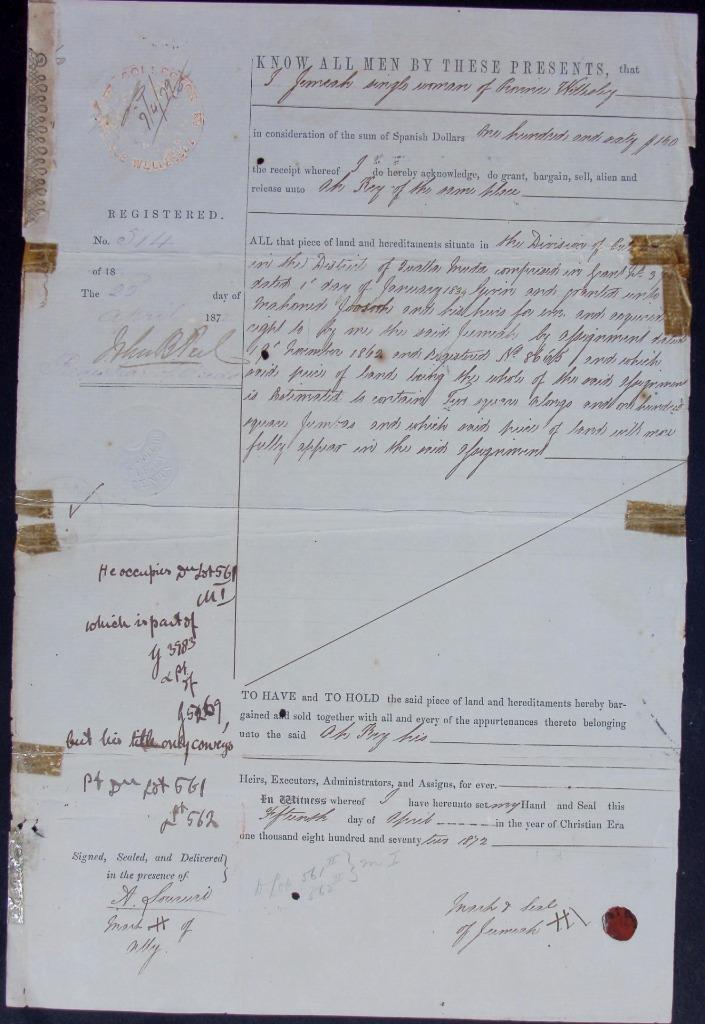 KNOW ALL MEN BY THESE PRESENTS, that
I Jemeah single woman of Province Wellesley
in consideration of the sum of Spanish Dollars One hundred and sixty $160
the receipt whereof I do hereby acknowledge, do grant, bargain, sell, alien and
release unto Ah Pey of the same place
REGISTERED.
No. 514
of 18
The 22 day of
April 187
ALL that piece of land and hereditaments situate in the Division of
in the District of Qualla Muda comprised in Grant No. 3
dated 1st day of January 1834 Given and granted unto
Mahomed and his heirs for ever and acquired
right to by me the said Jemeah by assignment dated
November 1862 and Registered No. and which
said piece of land being the whole of the said assignment
is Estimated to contain Two square Orlongs and one hundred
square Jumbas and which said piece of land will more
fully appear in the said assignment
He occupies Lot 561
M I
which is part of
G 3983
& Pt of
G 5269,
but his title only conveys
Pt Lot 561
& Lt 562
TO HAVE and TO HOLD the said piece of land and hereditaments hereby bar-
gained and sold together with all and every of the appurtenances thereto belonging
unto the said Ah Pey his
Heirs, Executors, Administrators, and Assigns, for ever.
In Witness whereof I have hereunto set my Hand and Seal this
Fifteenth day of April in the year of Christian Era
one thousand eight hundred and seventy two 1872
Signed, Sealed, and Delivered
in the presence of
A.
Mark of
Ally.
Lot 561 II
562 II
M I
Mark & Seal
of Jemeah